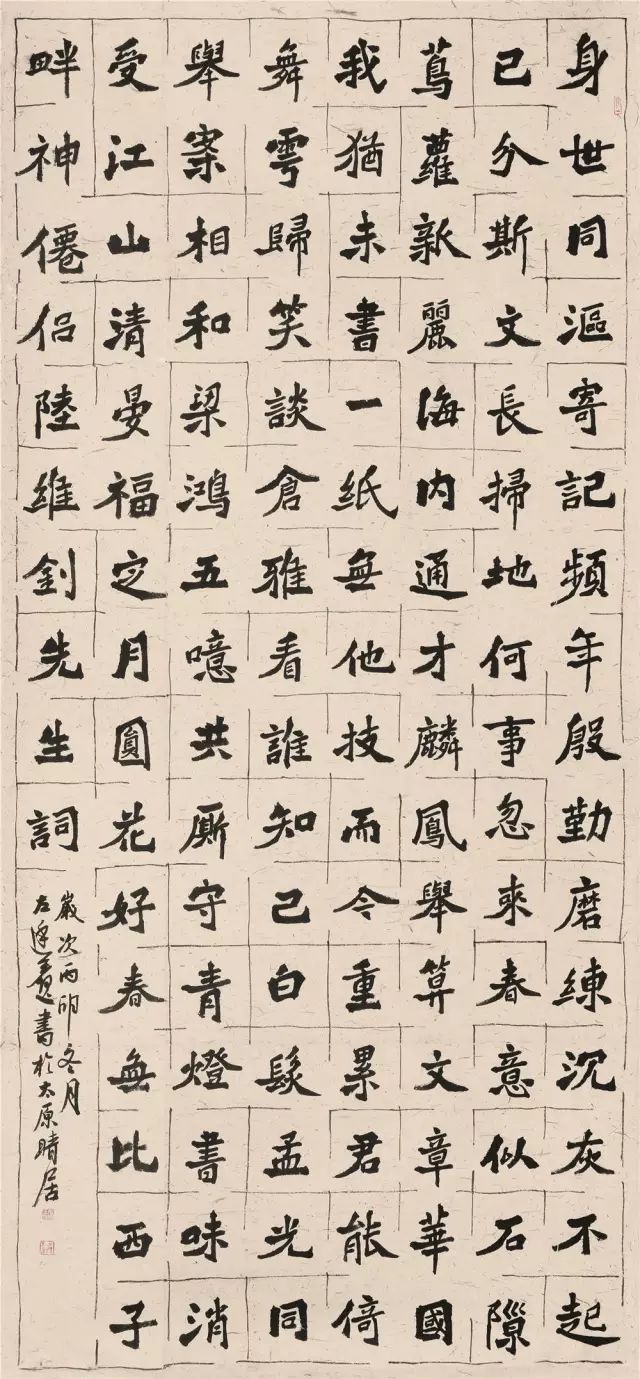 身世同漚寄記頻年殷勤磨練沉灰不起
已分斯文長掃地何事忽來春意似石隙
蔦蘿新麗海內通才麟鳳舉算文章華國
我猶未書一紙無他技而今重累君能倚
舞雩歸笑談倉雅看誰知己白髮孟光同
舉案相和梁鴻五噫共廝守青燈書味消
受江山清晏福定月圓花好春無比西子
畔神僊侶陸維釗先生詞
歲次丙冬月
左書於太原晴居